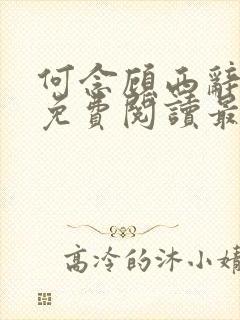 何念顧西辭
免費閱讀最
高冷的沐小婧